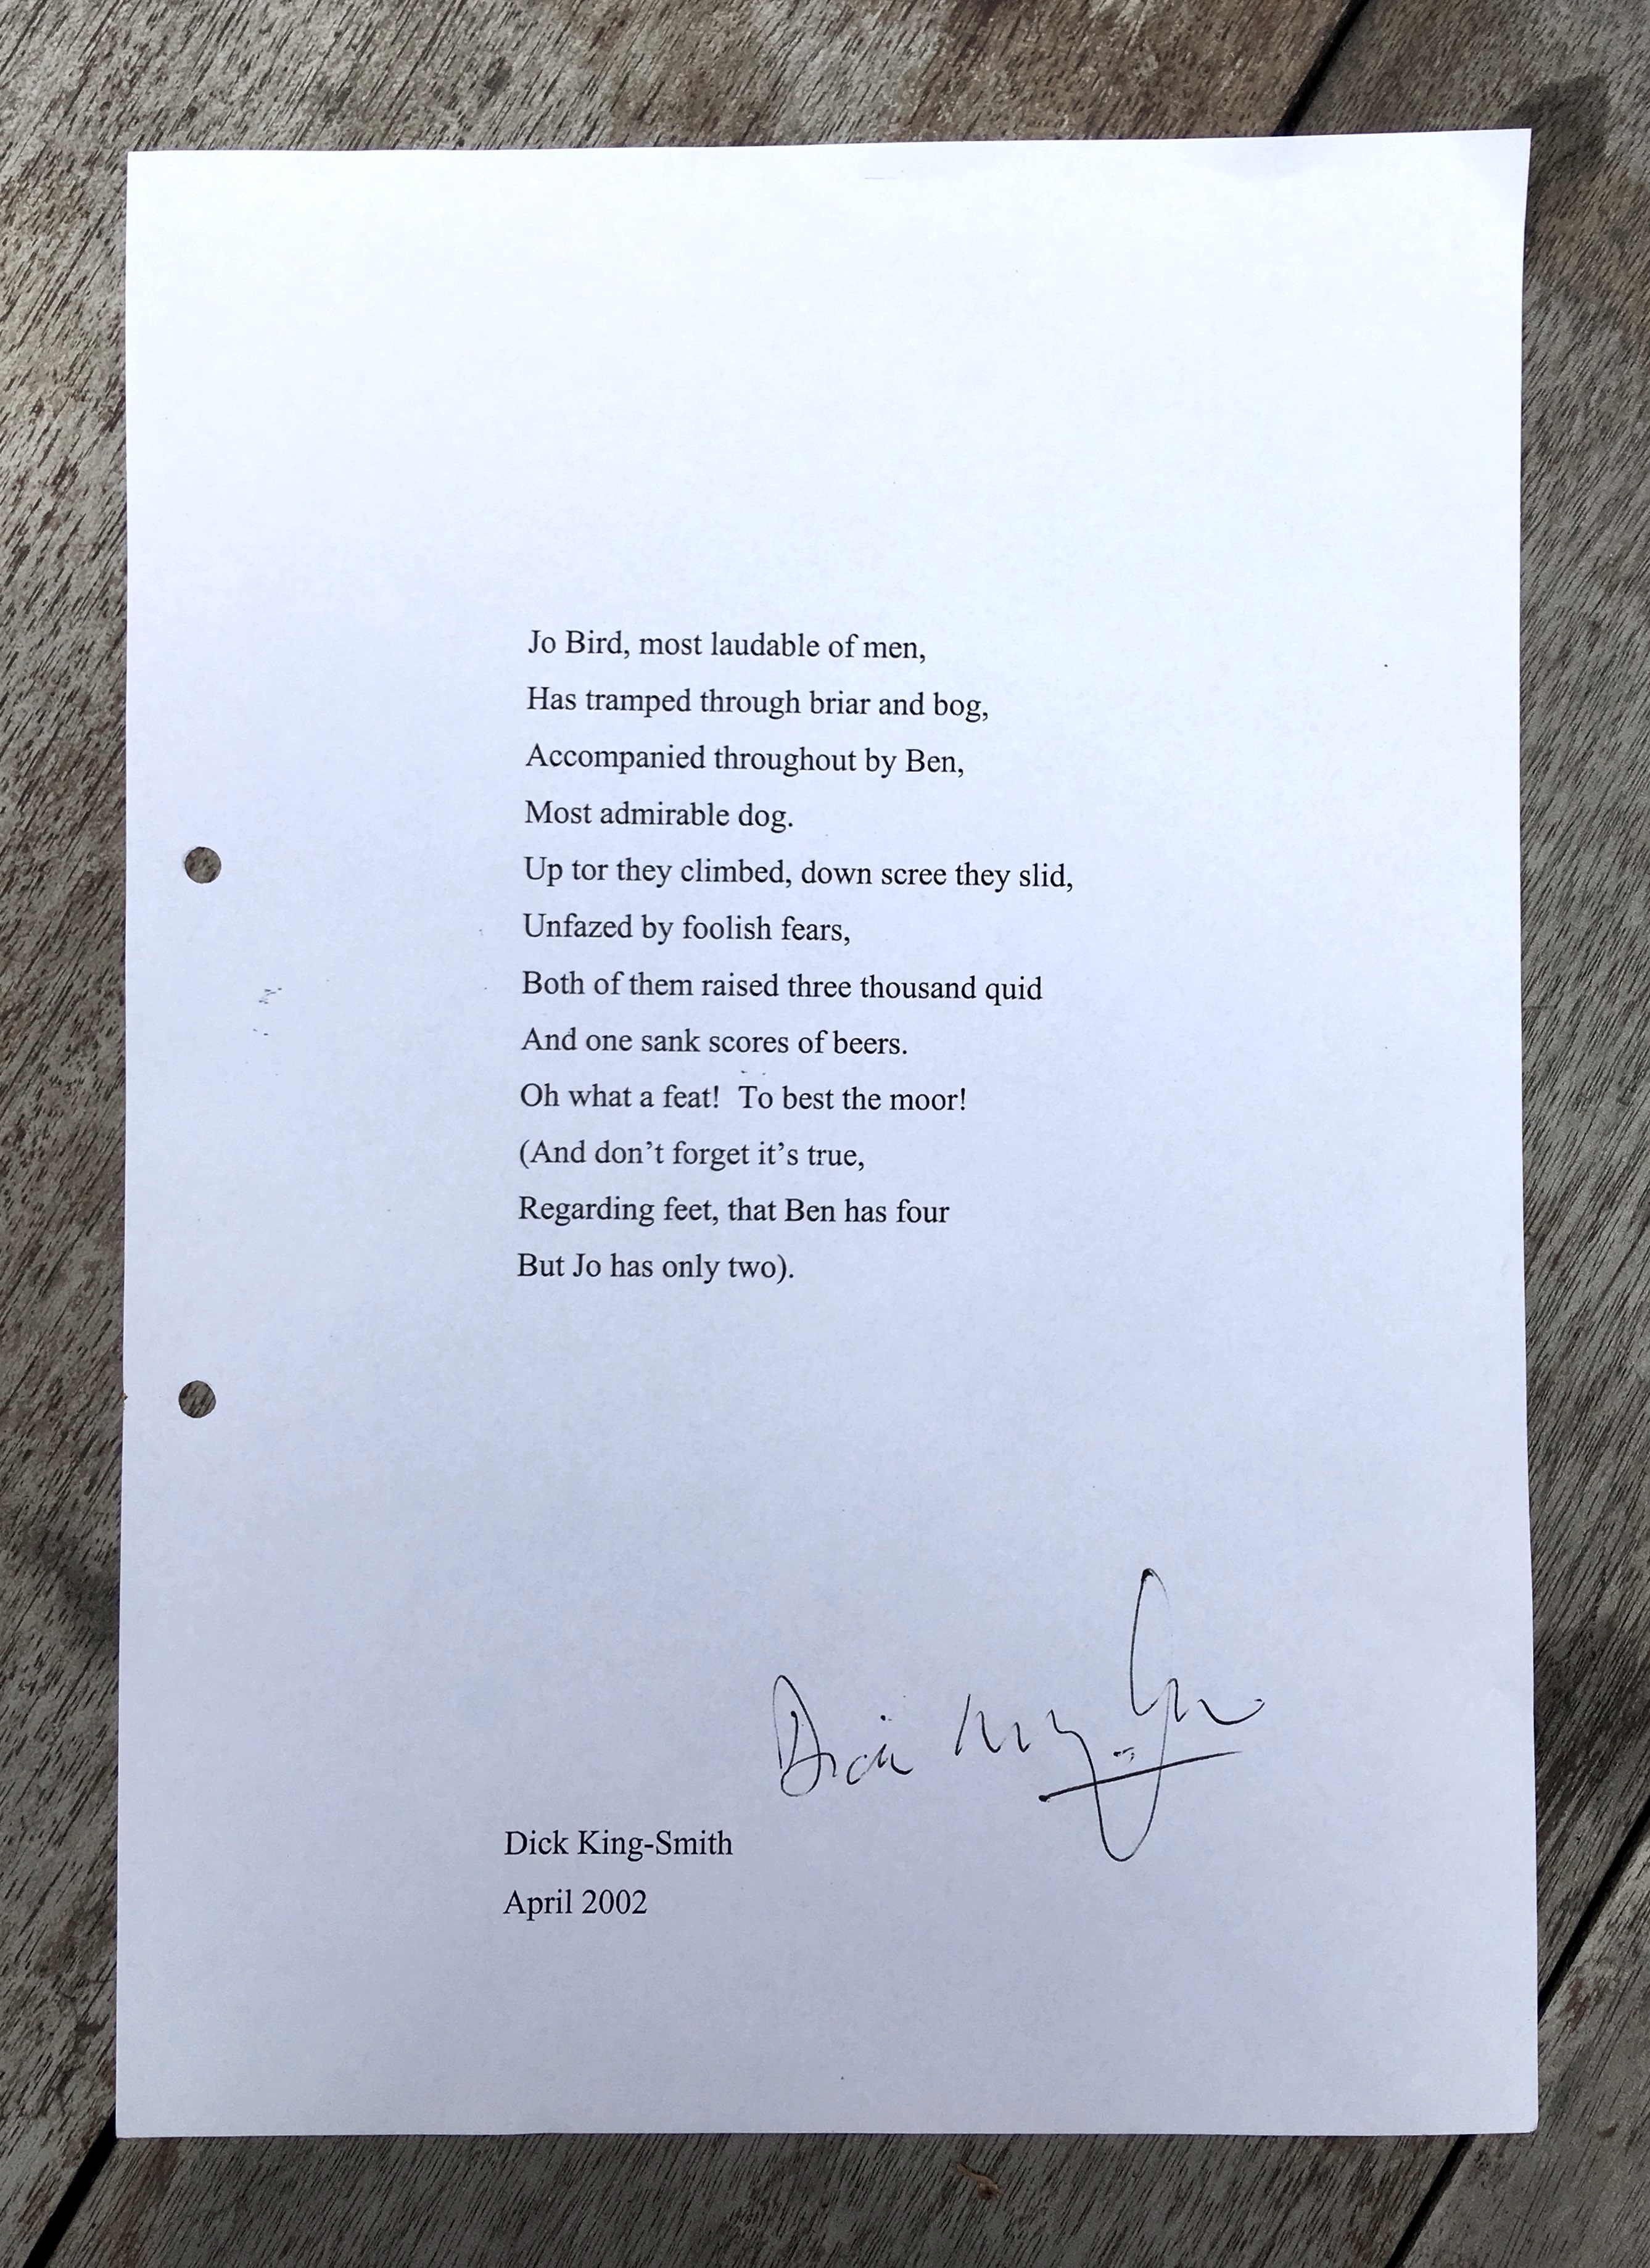 Jo Bird, most laudable of men,
Has tramped through briar and bog,
Accompanied throughout by Ben,
Most admirable dog.
Up tor they climbed, down scree they slid,
Unfazed by foolish fears,
Both of them raised three thousand quid
And one sank scores of beers.
Oh what a feat!  To best the moor!
(And don’t forget it’s true,
Regarding feet, that Ben has four
But Jo has only two).
Dick King-Smith
Dick King-Smith
April 2002